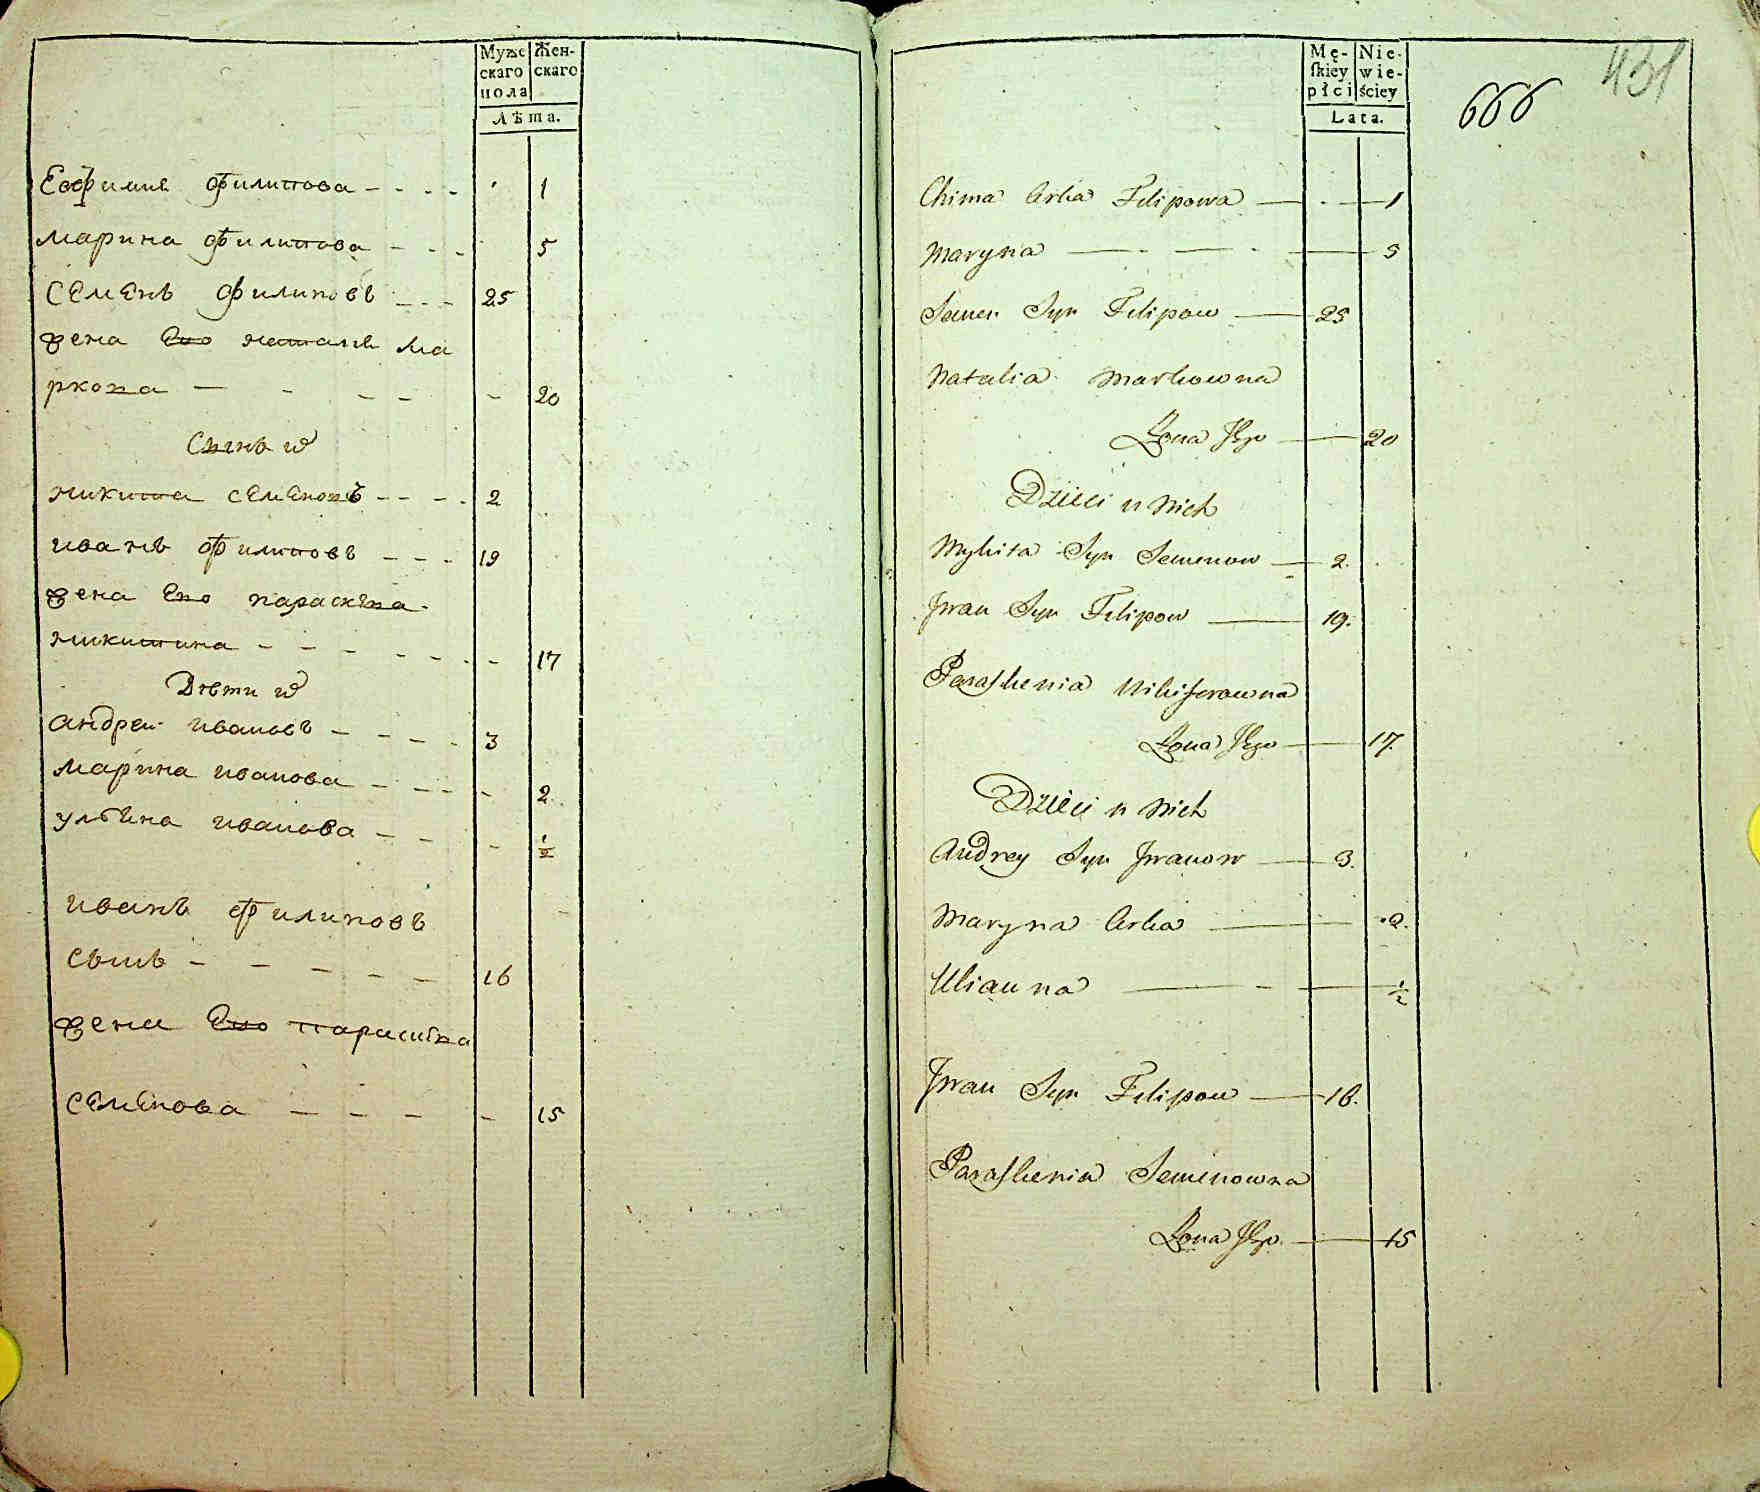 Муже
скаго
пола
Жен-
скаго
Лѣта.
Евфимиѣ филипова - - - - 1
марина филипова - - - 5
семенъ филиповъ - - - 25
жена Его наталиѣ ма
ркова - - - - - 20
Сынъ ихъ
микита семеновъ - - - - 2
иванъ филиповъ - - - 19
жена Его параскѣва
микитина - - - - - - - 17
Дѣти ихъ
андреи ивановъ - - - - 3
марина иванова - - - - - 2
улѣяна иванова - - - 1/2
иванъ филиповъ
сынъ - - - - - 16
жена Его параскѣва
семенова - - - - - 15
Mę-
skiey
płci
Nie-
wie-
ściey
Lata.
666
431
Chima Crka Filipowa — - — 1
Maryna — - — - — 5
Semen Syn Filipow — 25
Natalia Markowna
Żona Jego — 20
Dzieci u Nich
Mykita Syn Semenow — 2.
Jwan Syn Filipow — 19.
Paraskewia Nikiforowna
Żona Jego — 17.
Dzieci u Nich
Andrey Syn Jwanow — 3.
Maryna Crka — 2.
Ulianna — - — 1/2
Jwan Syn Filipow — 16.
Paraskewia Semenowna
Żona Jego. — 15